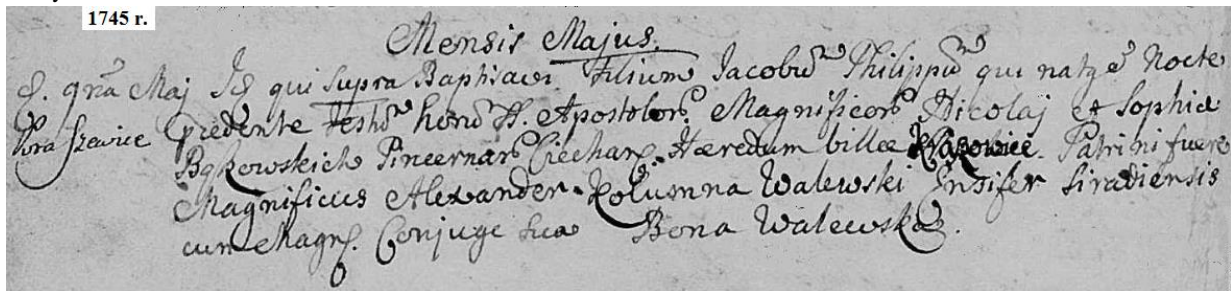 1745 r.
Mensis Majus.
d. 9na Maj Id qui supra Baptisavi Filium Jacobũ Philippũ qui natq̃ Nocte
szewice p̃cedente festũ horũ SS. Apostolorũ Magnificorũ Nicolaj et Sophiæ
Bąkowskich Pincernarũ Ciechan. Hæredum villæ Patrini fuere
Magnificus Alexander Kolumna Walewski Ensifer Siradiensis
cum Magn. Conjuge sua Bona Walewska.